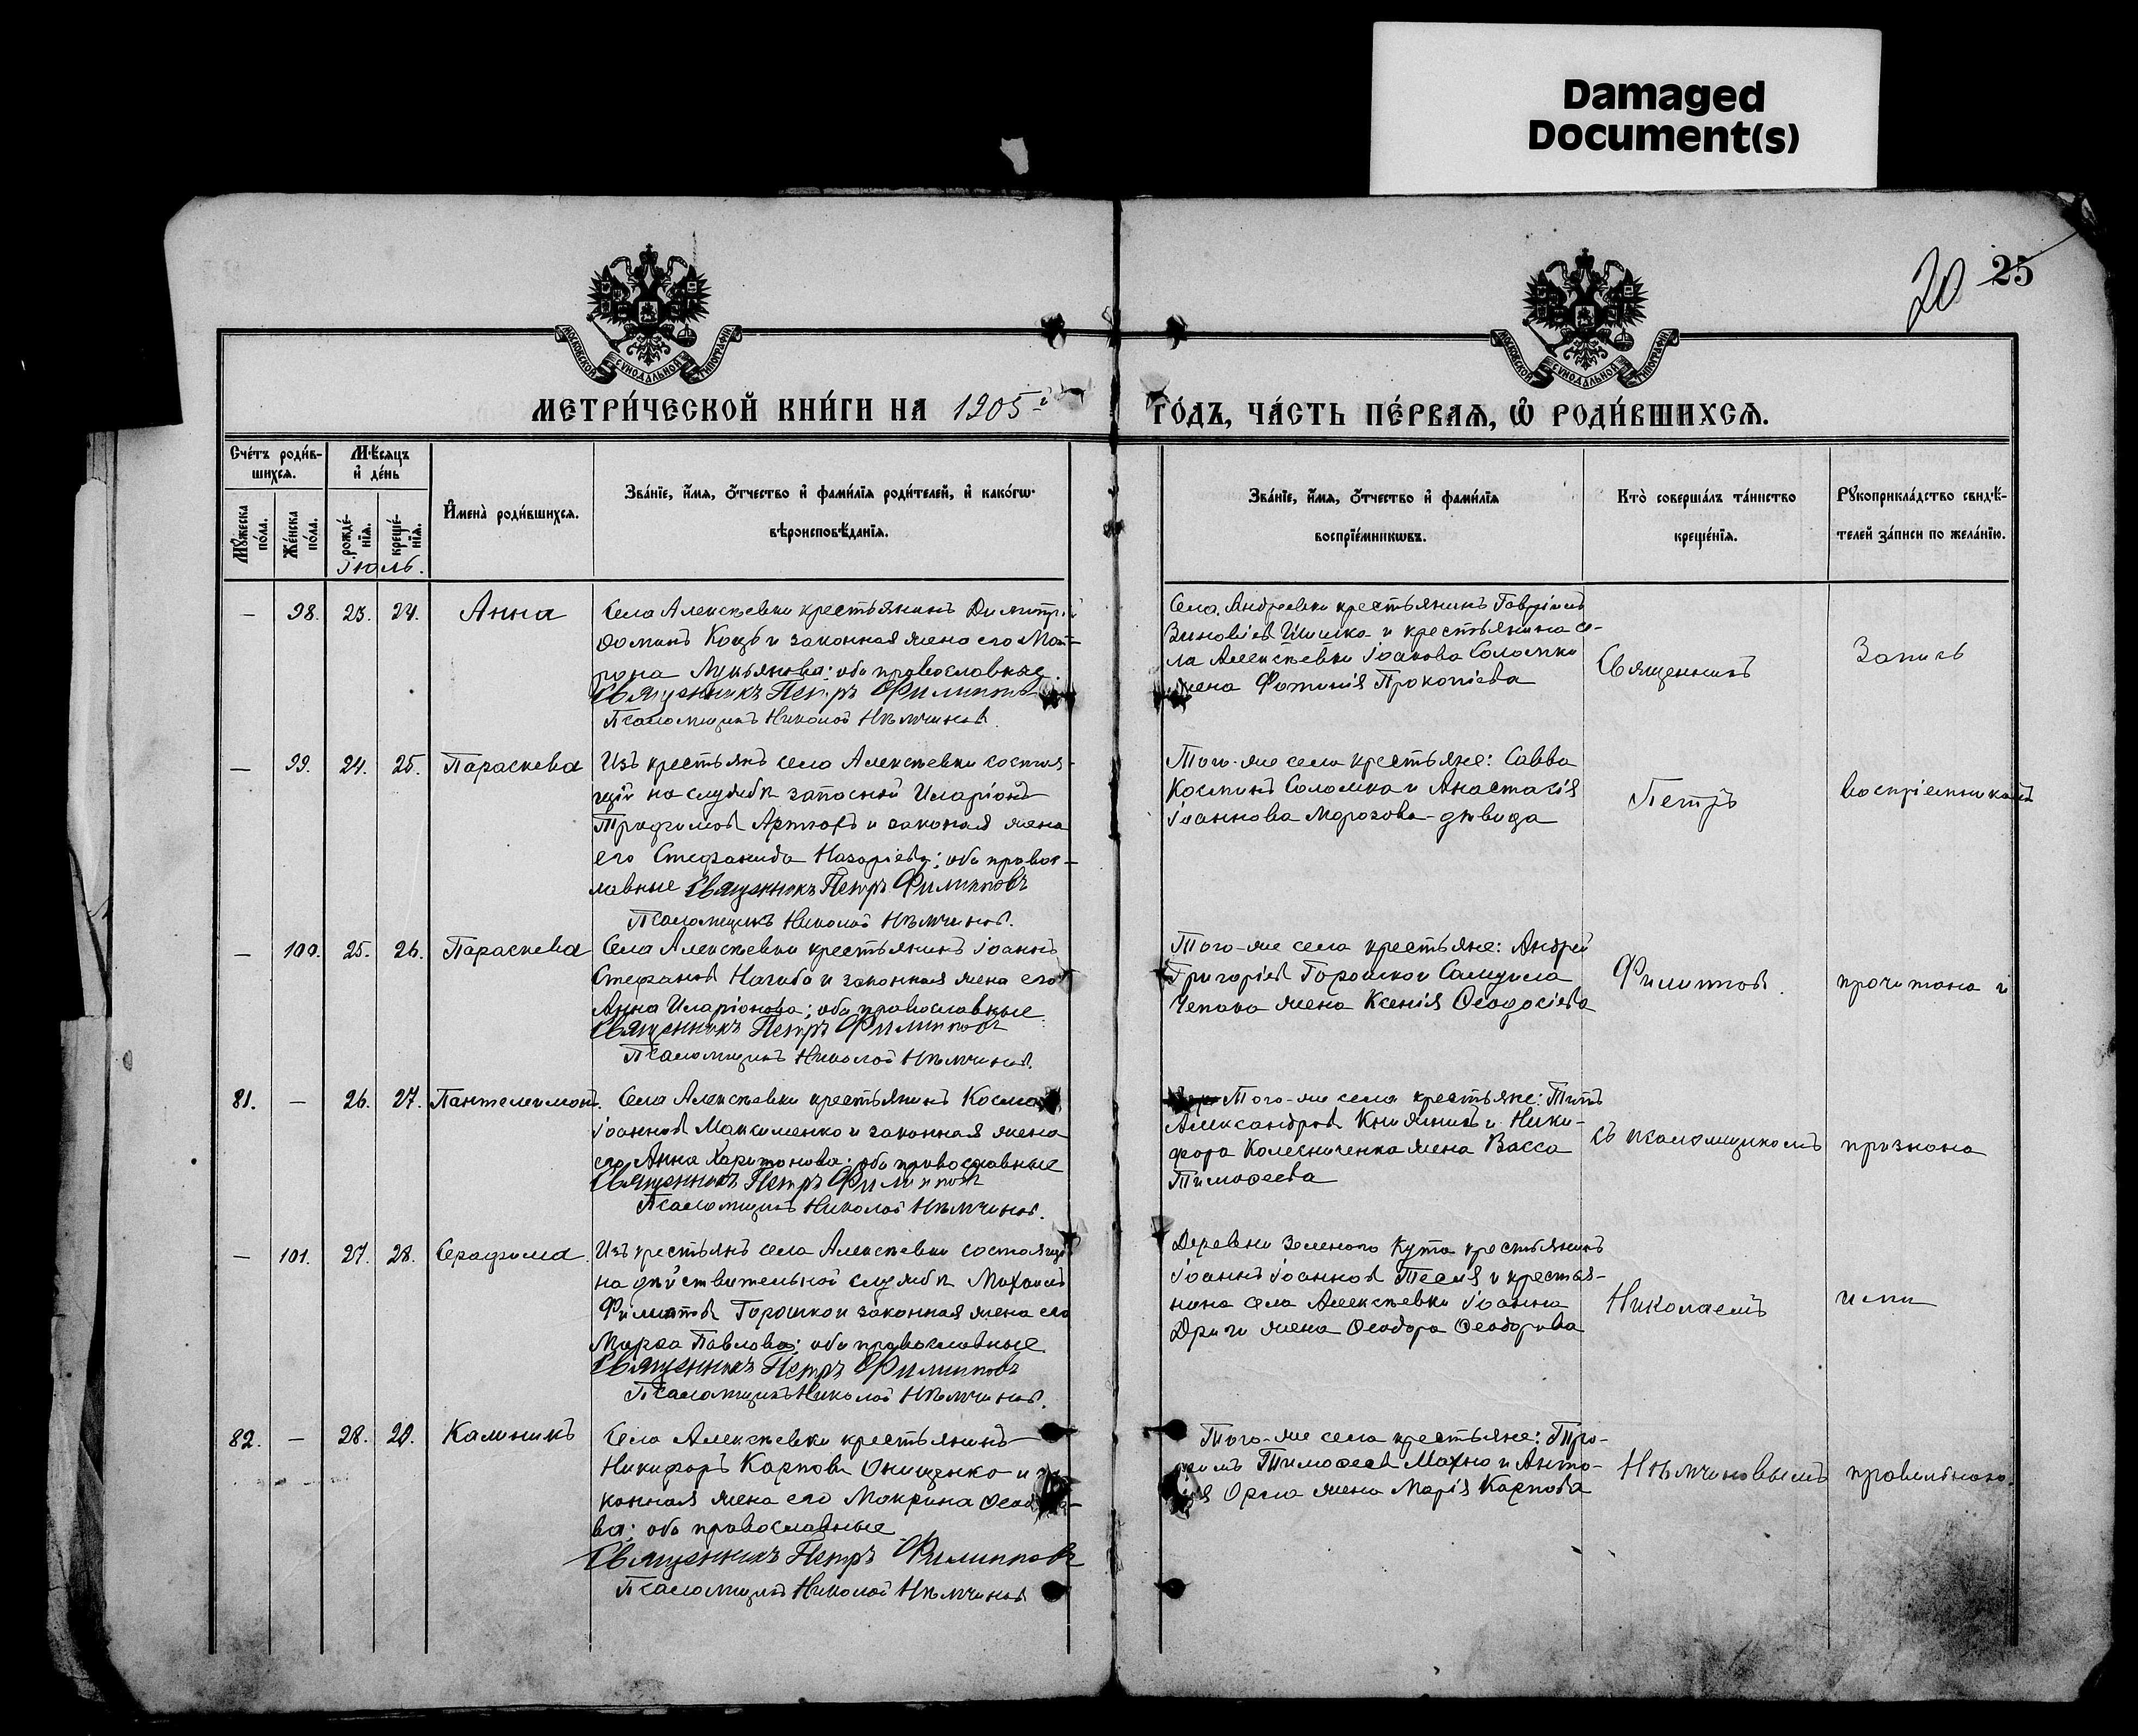 Damaged
Document(s)
20 25
МОСКОВСКОЙ СѴНОДАЛЬНОЙ ТИПОГРАФІИ
МОСКОВСКОЙ СѴНОДАЛЬНОЙ ТИПОГРАФІИ
МЕТРИ́ЧЕСКОЙ КНИ́ГИ НА 1905й
ГО́ДЪ, ЧА́СТЬ ПЕ́РВАѦ, Ѿ РОДИ́ВШИХСѦ.
Сче́тъ роди́в-
шихсѧ.
Мужеска по́ла.
Же́нска по́ла.
Мѣ́сѧцъ
и҆ де́нь
рожде́-нїѧ.
креще́-нїѧ.
Іюль.
И҆мена̀ роди́вшихсѧ.
Зва́нїе, и҆́мѧ, ѻ҆́тчество и҆ фами́лїѧ роди́телей, и҆ како́гѡ
вѣроисповѣ́данїѧ.
Зва́нїе, и҆́мѧ, ѻ҆́тчество и҆ фами́лїѧ
воспрїе́мникѡвъ.
Кто̀ соверша́лъ та́инство
креще́нїѧ.
Рꙋкоприкла́дство свидѣ́-
телей за́писи по жела́нїю.
— 98. 23. 24. Анна
Села Алексѣевки крестьянинъ Димитрій
Ѳоминъ Коцъ и законная жена его Мат-
рона Лукьянова; оба православные.
Священникъ Петръ Филипповъ
Псаломщикъ Николай Нѣмчиновъ.
Села Андреевки крестьянинъ Гавріилъ
Зиновіевъ Шишка и крестьянина се-
ла Алексѣевки Іоакова Соломки
жена Фотинія Прокопіева
Священникъ
Запись
— 99. 24. 25. Параскева
Изъ крестьянъ села Алексѣевки состоя-
щій на службѣ запасной Иларіонъ
Трофимовъ и законая жена
его Стефанида Назаріева; оба правос-
лавные Священникъ Петръ Филипповъ
Псаломщикъ Николай Нѣмчиновъ.
Того-же села крестьяне: Савва
Косминъ Соломка и Анастасія
Іоаннова Морозова-дѣвица
Петръ
воспріемникамъ
— 100. 25. 26. Параскева
Села Алексѣевки крестьянинъ Іоаннъ
Стефановъ Нагиба и законная жена его
Анна Иларіонова; оба православные.
Священникъ Петръ Филипповъ
Псаломщикъ Николай Нѣмчиновъ.
Того-же села крестьяне: Андрей
Григоріевъ Горошко и Самуила
жена Ксенія Ѳеодосіева
Филипповъ.
прочитана и
81. — 26. 27. Пантелеимонъ.
Села Алексѣевки крестьянинъ Косма
Іоанновъ Максименко и законная жена
его Анна Харитонова; оба православные
Священникъ Петръ Филипповъ
Псаломщикъ Николай Нѣмчиновъ.
Того-же села крестьяне: Титъ
Александровъ и Ники-
фора Колесниченка жена Васса
Тимоѳеева
съ псаломщикомъ
признана
— 101. 27. 28. Серафима.
Изъ крестьянъ села Алексѣевки состоящій
на дѣйствительной службѣ Михаилъ
Филиповъ Горошко и законная жена его
Марѳа Павлова; оба православные.
Священникъ Петръ Филипповъ
Псаломщикъ Николай Нѣмчиновъ.
Деревни Зеленого Кута крестьянинъ
Іоаннъ Іоанновъ Тесля и крестья-
нина села Алексѣевки Іоанна
Дриги жена Ѳеодора Ѳеодорова
Николаемъ
ими
82. — 28. 29. Калиникъ
Села Алексѣевки крестьянинъ
Никифоръ Карповъ Онищенко и за-
конная жена его Макрина
ва; оба православные
Священникъ Петръ Филипповъ
Псаломщикъ Николай Нѣмчиновъ
Того-же села крестьяне: Тро-
фимъ Тимоѳеевъ Махно и Анто-
нія Орла жена Марія Карпова
Нѣмчиновымъ
правильною.